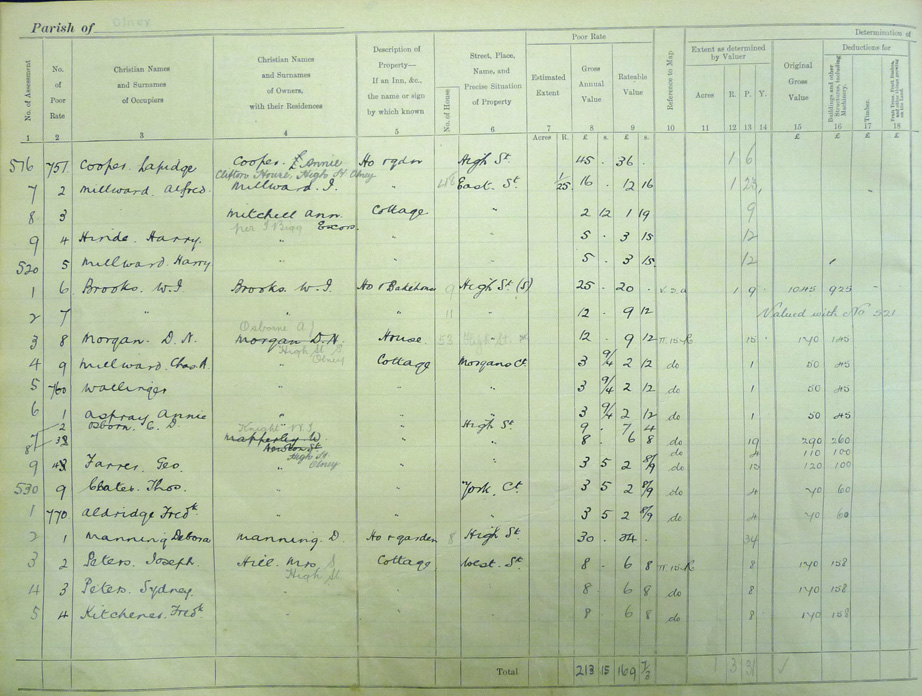 Parish of Olney
Determination of
No. of Assessment
No. of Poor Rate
Christian Names and Surnames of Occupiers
Christian Names and Surnames of Owners, with their Residences
Description of Property— If an Inn, &c., the name or sign by which known
No. of House
Street, Place, Name, and Precise Situation of Property
Poor Rate
Estimated Extent
Gross Annual Value
Rateable Value
Reference to Map
Extent as determined by Valuer
Acres R. P. Y.
Original Gross Value
Deductions for
Buildings and other Structures, including Machinery.
Timber.
1 2 3 4 5 6 7 8 9 10 11 12 13 14 15 16 17 18
Acres R. £ s. £ s. £ £
576 757 Cooper. Lapidge Cooper. F. Annie Ho & gdn High St. 45 . 36 . 1 6
Clifton House, High St Olney
7 2 Millward. Alfred. Millward. J. " East. St. 1/25 16 . 12 16 1 23
8 3 Mitchell Ann. Cottage " 2 12 1 19 9
per J Bigg Excors.
9 4 Hinde. Harry. " " " 5 . 3 15 12
520 5 Millward. Harry " " " 5 . 3 15 12
1 6 Brooks. W.J. Brooks. W.J. Ho & Bakehouse 9 High St (S) 25 . 20 . 1 9 1045 925
2 7 " " " 11 " 12 . 9 12 Valued with No 521
Osborne A J
3 8 Morgan. D.N. Morgan. D.N. House 53 High St. 12 . 9 12 15 170 145
High St S Olney
4 9 Millward. Chas A. " Cottage Morgans Ct. 3 9/4 2 12 do 1 50 45
5 760 Wallinger " " " 3 9/4 2 12 do 1 50 45
6 1 Aspray. Annie " " " 3 9/4 2 12 do 1 50 45
7 2 Osborn. C. D. Knight W J " High St. 9 . 7 4
8 3 Mapperley W. " " 8 . 6 8 do 19 290 260
do 4 110 100
High St Olney
9 8 Farrer. Geo. " " " 3 5 2 8/9 do 13 120 100
530 9 Clater. Thos. " " York. Ct. 3 5 2 8/9 do 4 70 60
1 770 Aldridge Fredk. " " " 3 5 2 8/9 do 4 70 60
2 1 Manning Debora Manning. D. Ho & garden 8 High St. 30 . 24 . 34
3 2 Peters. Joseph. Hill. Mrs S Cottage West. St. 8 . 6 8 8 170 158
High St
4 3 Peters. Sydney. " " " 8 . 6 8 do 8 170 158
5 4 Kitchener. Fredk " " " 8 . 6 8 do 8 170 158
Total 213 15 169 7/3 1 3 31